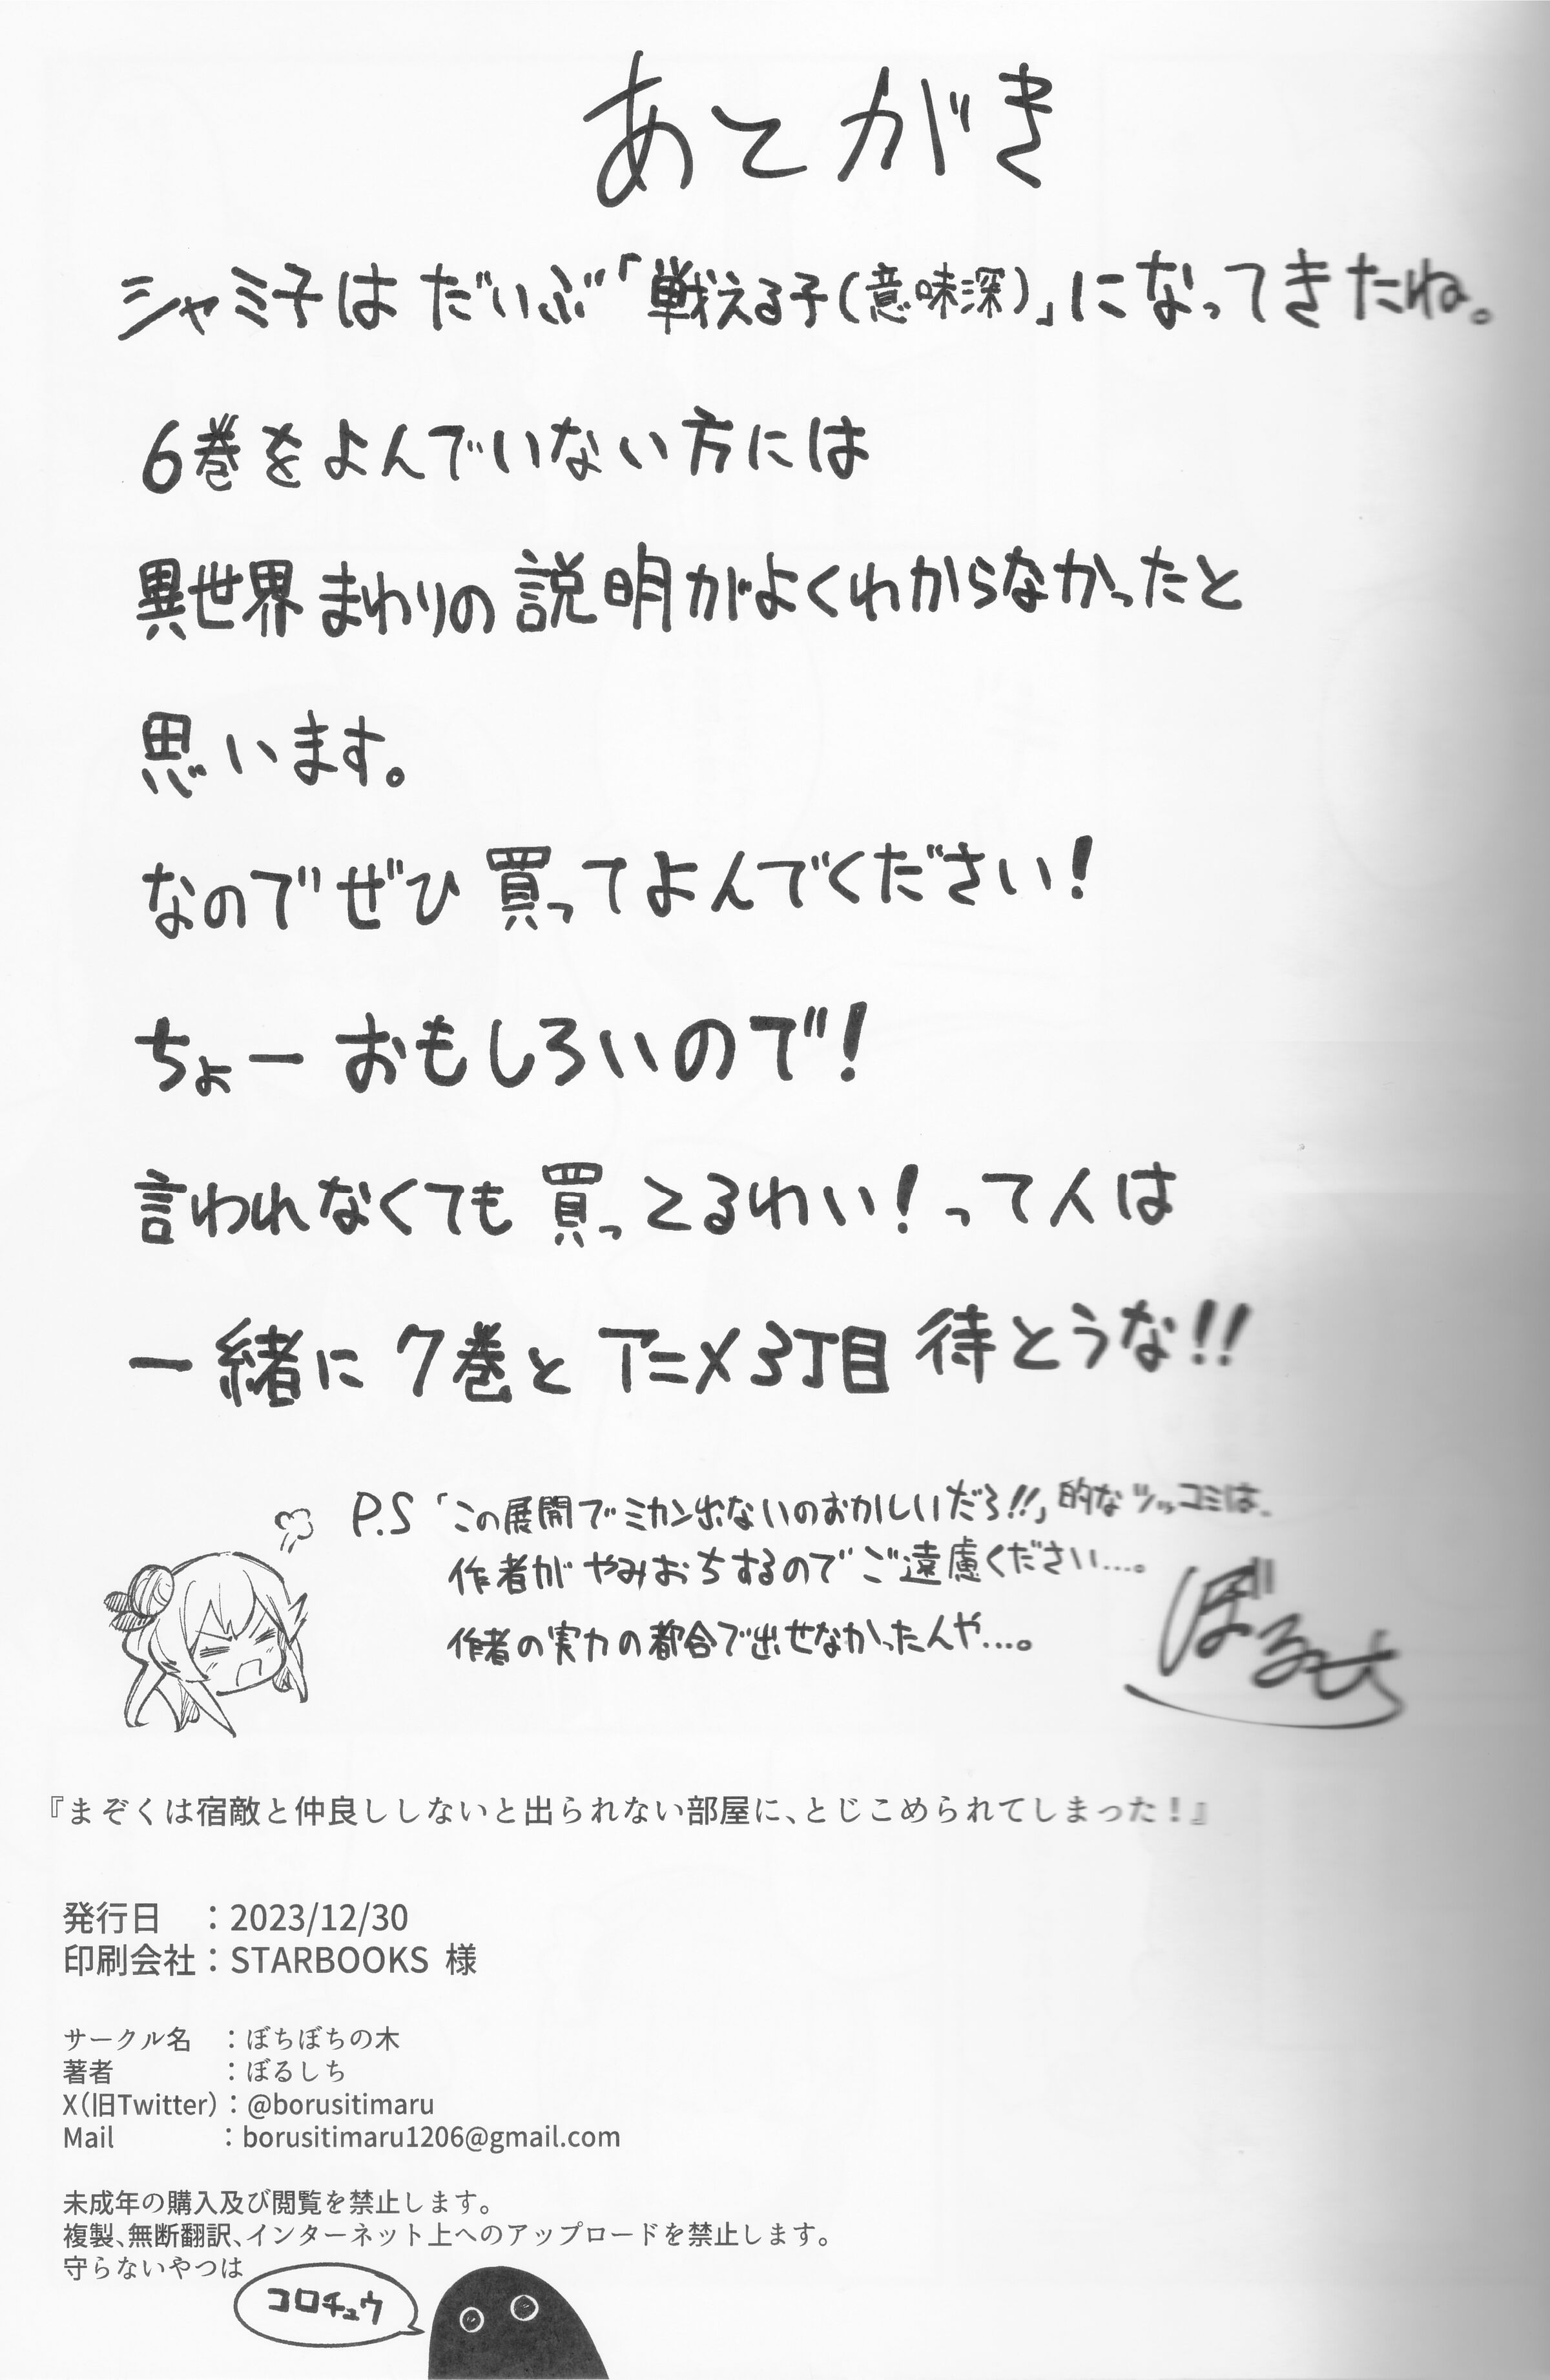 あとがき
シャミ子はだいぶ「戦える子(意味深)」になってきたね。
6巻をよんでいない方には
異世界まわりの説明がよくわからなかったと
思います。
なのでぜひ買ってよんでください!
ちょーおもしろいので!
言われなくても買っとるわい!って人は
一緒に7巻とアニメ3丁目待とうな!!
P.S「この展開でミカン出ないのおかしいだろ!!」的なツッコミは、
作者がやみおちするのでご遠慮ください…。
作者の実力の都合で出せなかったんや…。
ぼるしち
『まぞくは宿敵と仲良ししないと出られない部屋に、とじこめられてしまった!』
発行日 :2023/12/30
印刷会社:STARBOOKS 様
サークル名 :ぼちぼちの木
著者 :ぼるしち
X(旧Twitter):@borusitimaru
Mail :borusitimaru1206@gmail.com
未成年の購入及び閲覧を禁止します。
複製、無断翻訳、インターネット上へのアップロードを禁止します。
守らないやつは
コロチュウ